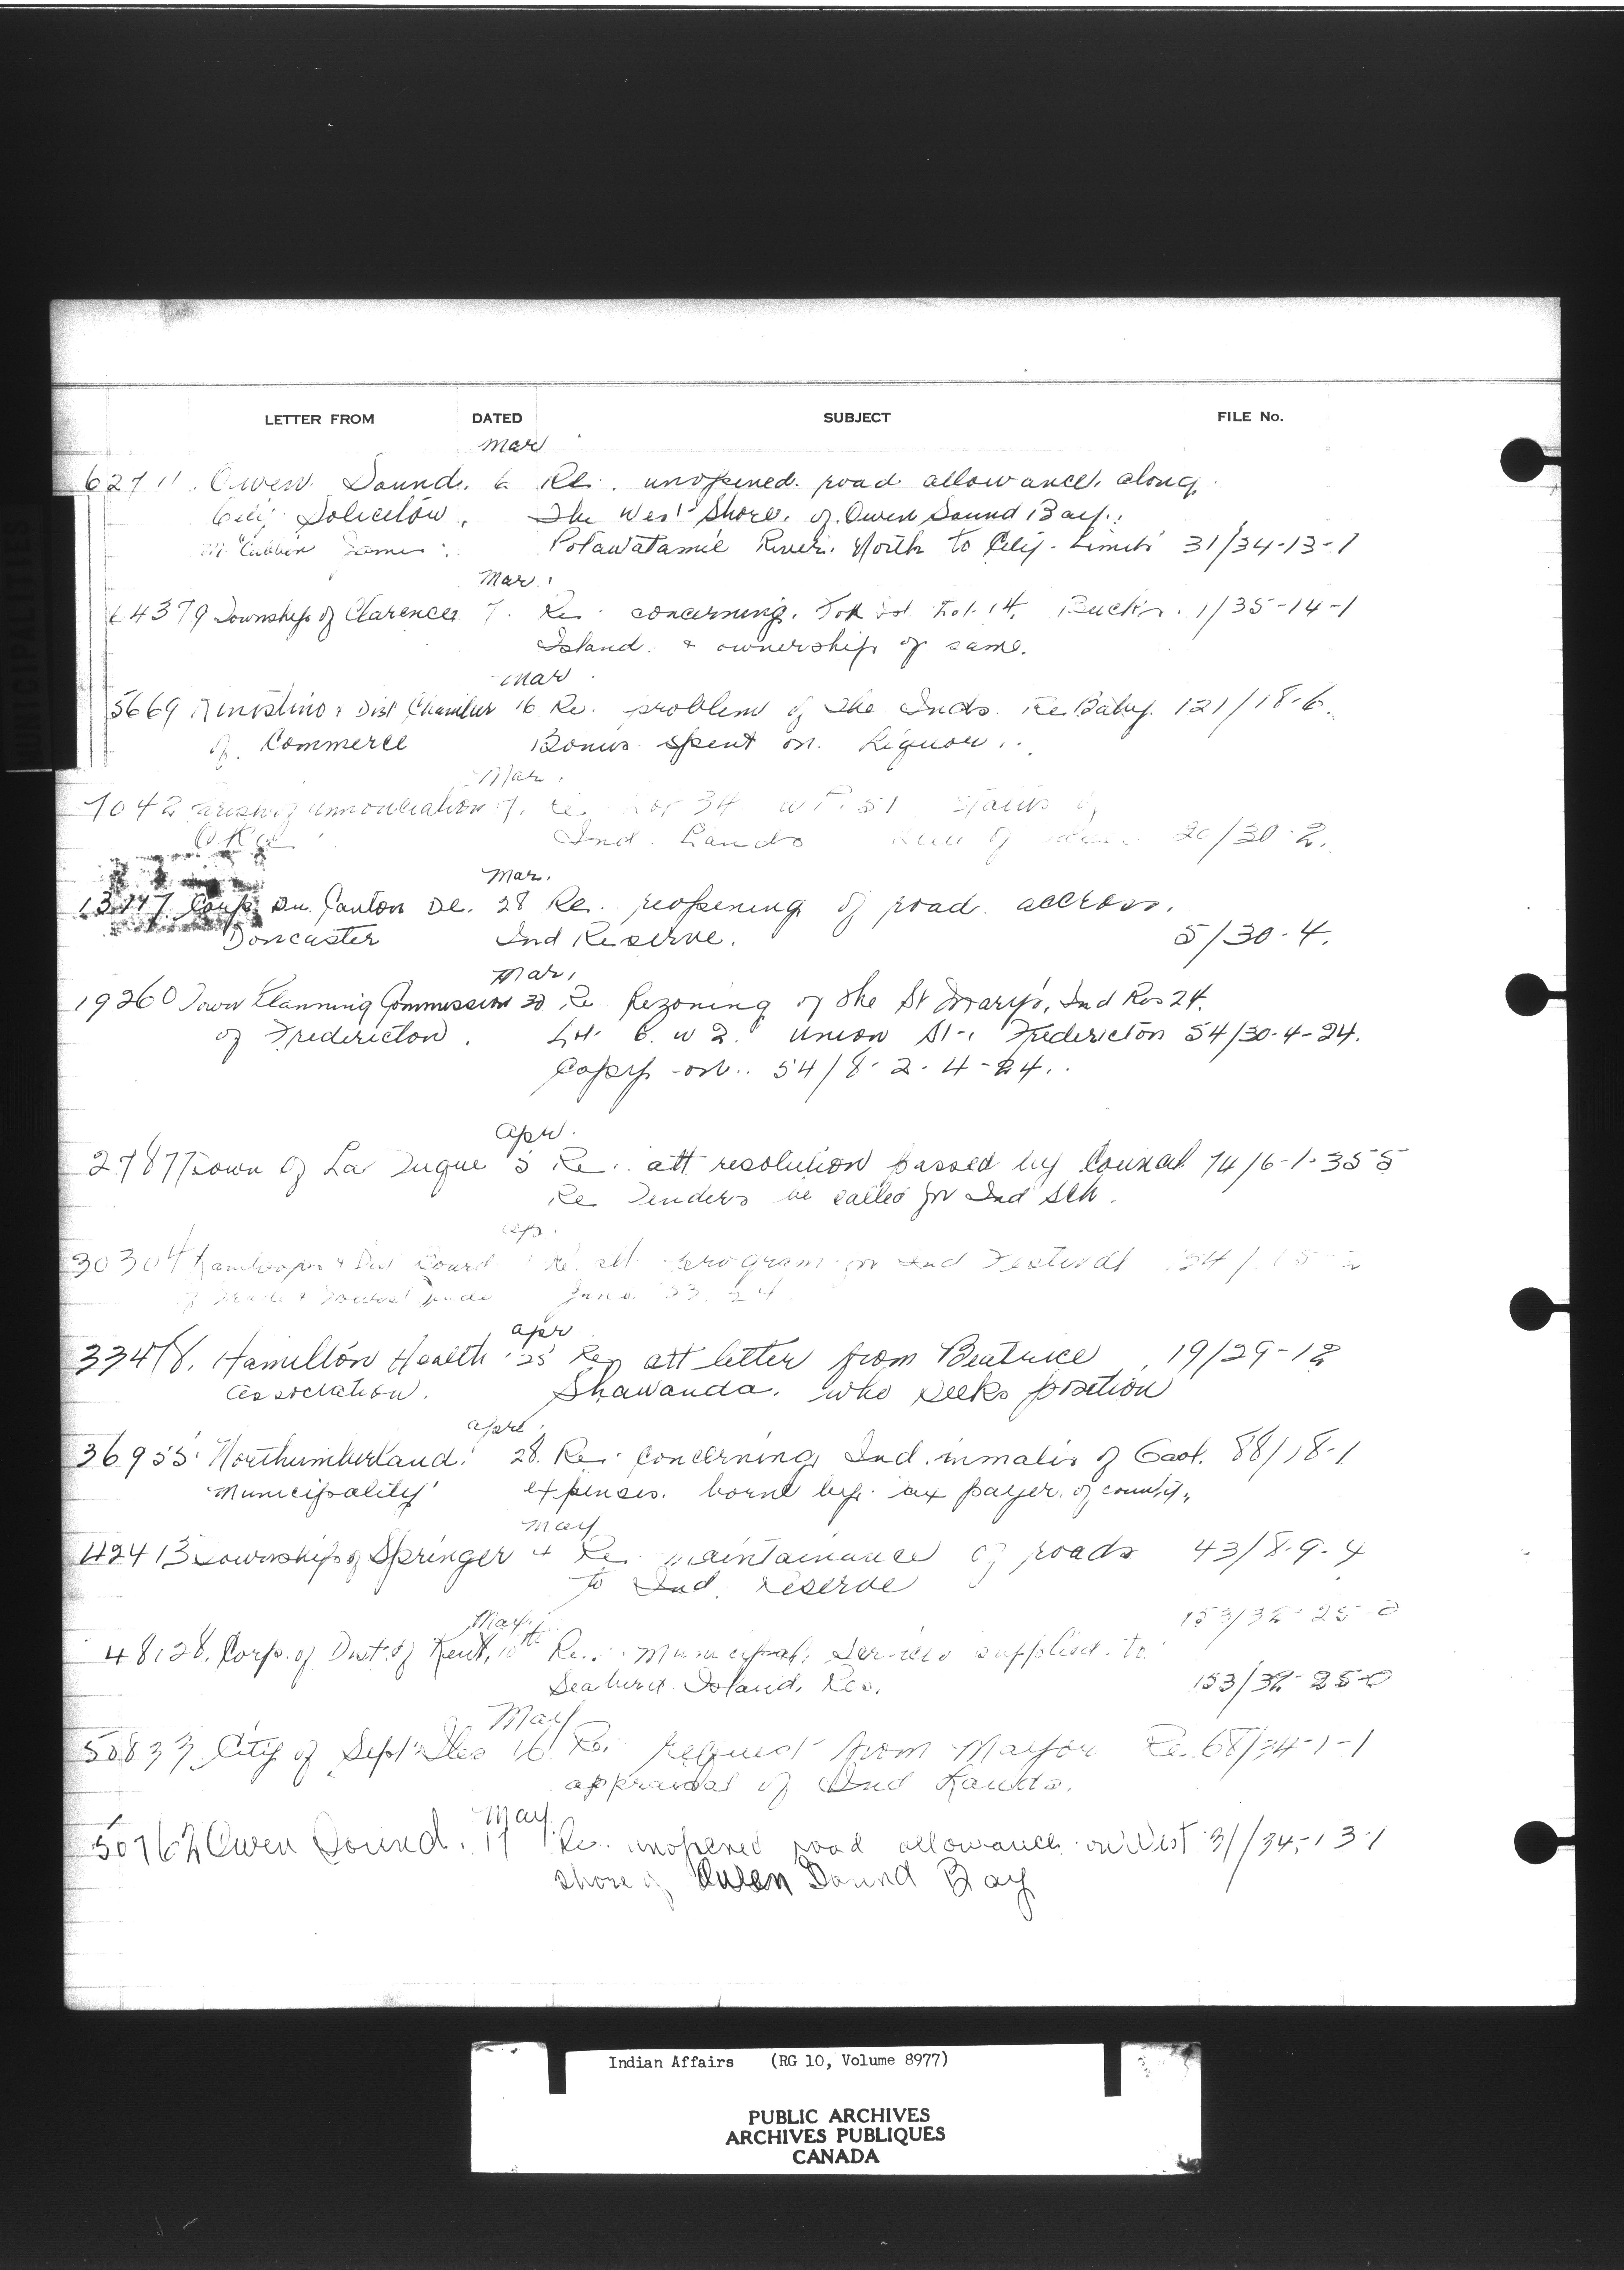 MUNICIPALITIES
LETTER FROM DATED SUBJECT FILE No.
Mar
62711 Owen Sound. 6 Re. unopened road allowance along
City Solicitor. The West Shore of Owen Sound Bay.
McCubbin James Potawatamie River North to City Limits 31/34-13-1
Mar.
4379 Township of Clarence 7. Re. concerning. Lot 14, 1/35-14-1
Island. & ownership of same.
Mar
5669 Kinistino & Dist Chamber 16 Re. problem of the Inds. Re Baby. 121/18-6
of Commerce Bonus spent on Liquor..
Mar.
7042 Lot 34
Ind. Lands 20/30-2.
Mar.
Corp. Du. Canton De. 28 Re. reopening of road accross.
Doncaster Ind Reserve. 5/30-4.
Mar.
19260 Town Planning Commission 30 Re Rezoning of the St Mary's, Ind Res 24.
of Fredericton. Union St. Fredericton 54/30-4-24.
Copy on.. 54/8-2-4-24..
Apr.
27877 Town of La Tuque 5 Re.. att resolution passed by Council 74/6-1-355
Re Tenders be called for Ind Sch.
Ap.
30304 & Dist Board Re. att program for Ind Festival
June
Apr
33478. Hamilton Health 25 Re att letter from Beatrice 19/29-12
Association. Shawanda. who seeks position
April
36955 Northumberland. 28. Re. concerning Ind. inmates of Gaol. 88/18-1
Municipality expenses. borne by. tax payer of county.
May
42413 Township of Springer 4 Re. maintainance of roads 43/8-9-4
to Ind. reserve
May 153/32-25-0
48128. Corp. of Dist. of Kent, 10th Re.. Municipal. Services supplied. to
Seabird Island. Res. 153/32-25-0
May
50833 City of Sept Iles 16 Re. request from Mayor Re. 68/34-1-1
appraisal of Ind Lands.
May
50762 Owen Sound. 17 Re.. unopened road allowance on West 31/34-13-1
shore of Owen Sound Bay
Indian Affairs (RG 10, Volume 8977)
PUBLIC ARCHIVES
ARCHIVES PUBLIQUES
CANADA